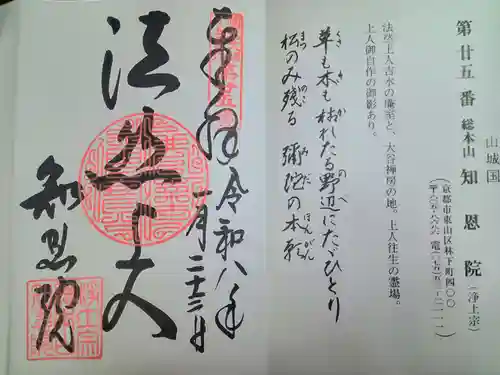 山城国
第廿五番 総本山 知恩院（浄土宗）
（京都市東山区林下町四〇〇
法然上人吉水の庵室と、大谷禅房の地。上人往生の霊場。
上人御自作の御影あり。
草も木も枯れたる野辺にたゞひとり
くさ き か のべ
松のみ残る 彌陀の本願
まつ のこ みだ ほんがん
奉拝 令和八年
一月二十三日
法然上人
知恩院
浄土宗